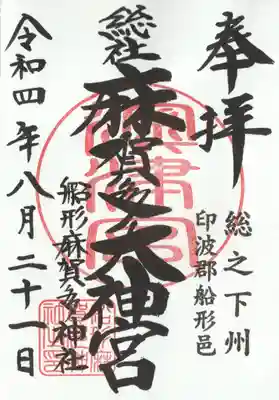 奉拝
総之下州
印波郡船形邑
総社
麻賀多大神宮
船形麻賀多神社
令和四年八月二十一日